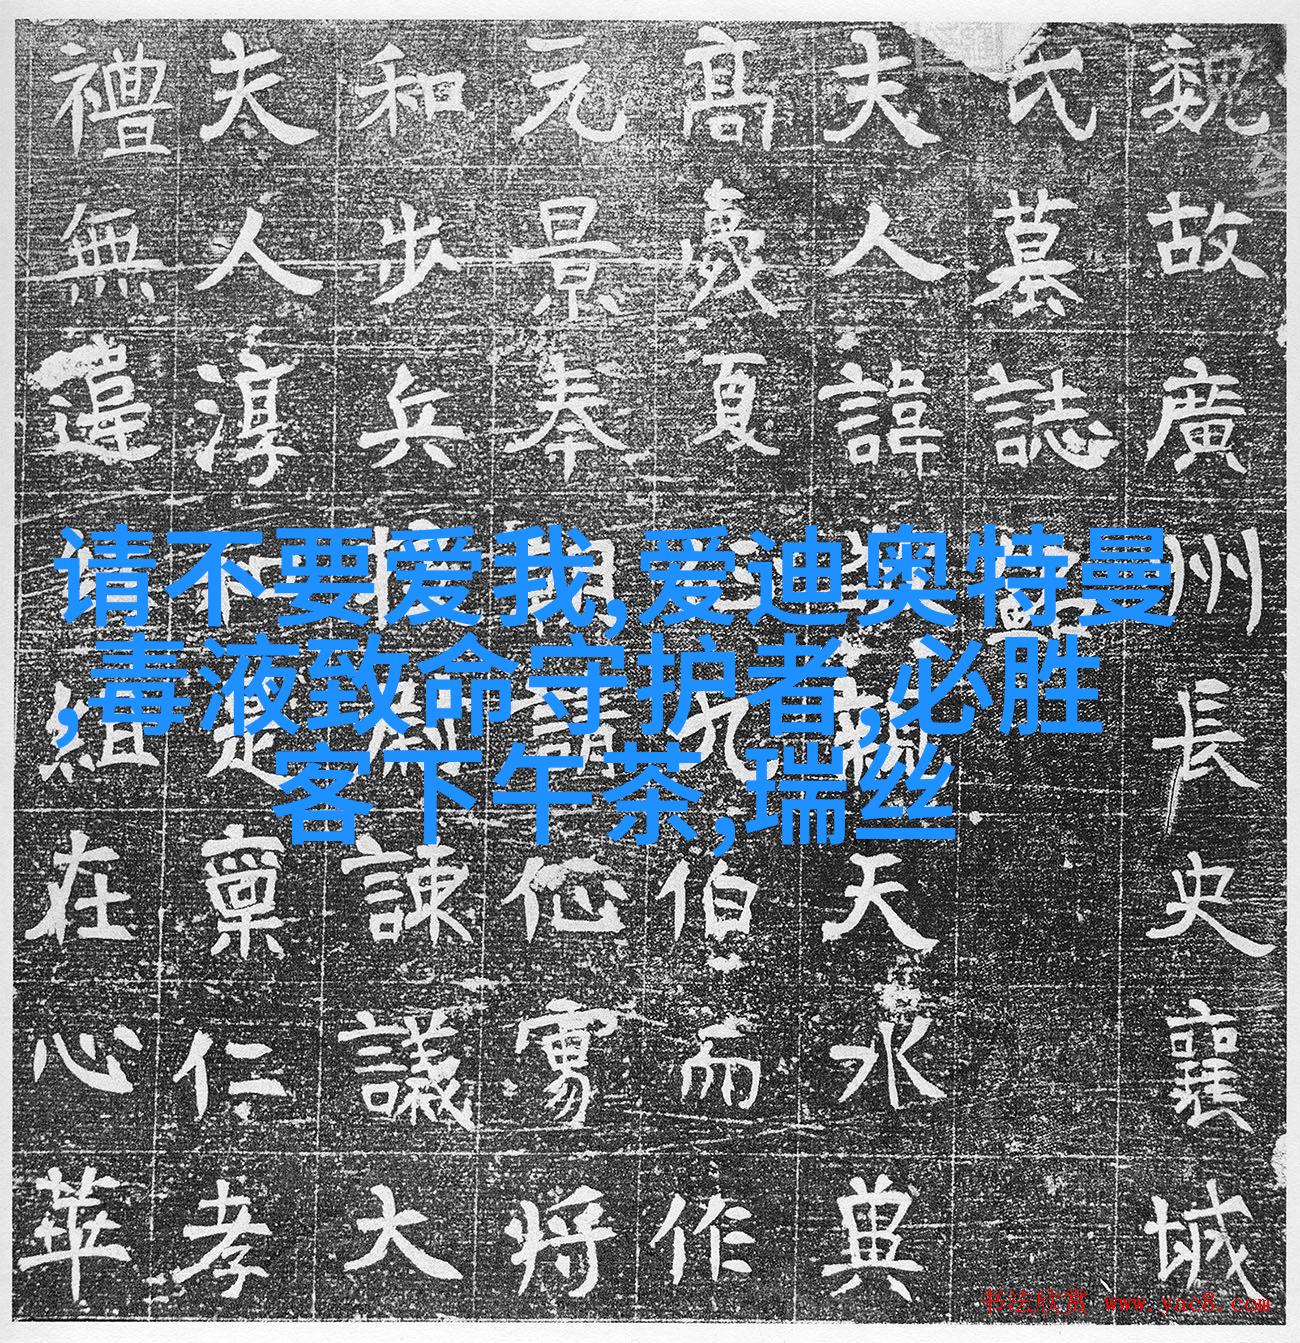 魏故廣州長史襄城
氏墓誌
夫人諱天水典
髙歲夏伯而作
元景奉朝請将
和步兵諫議大
夫人淳稟仁孝
禮無違組在心華
请不要爱我,爱迪奥特曼
,毒液致命守护者,必胜
客下午茶,瑞丝
书法欣赏 www.yac8.com